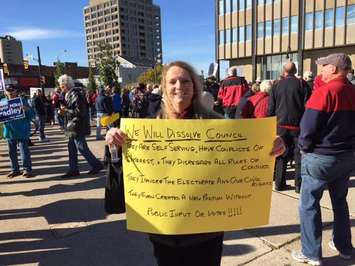 We Will Dissolve Council
They Are Self Serving, Have Conflicts Of
Interest, & They Disregard All Rules of
Conduct
They Ignore The Electorate And Our Civil
Rights
They Even Created A New Position Without
Public Input Or Votes !!!!!
Bradley